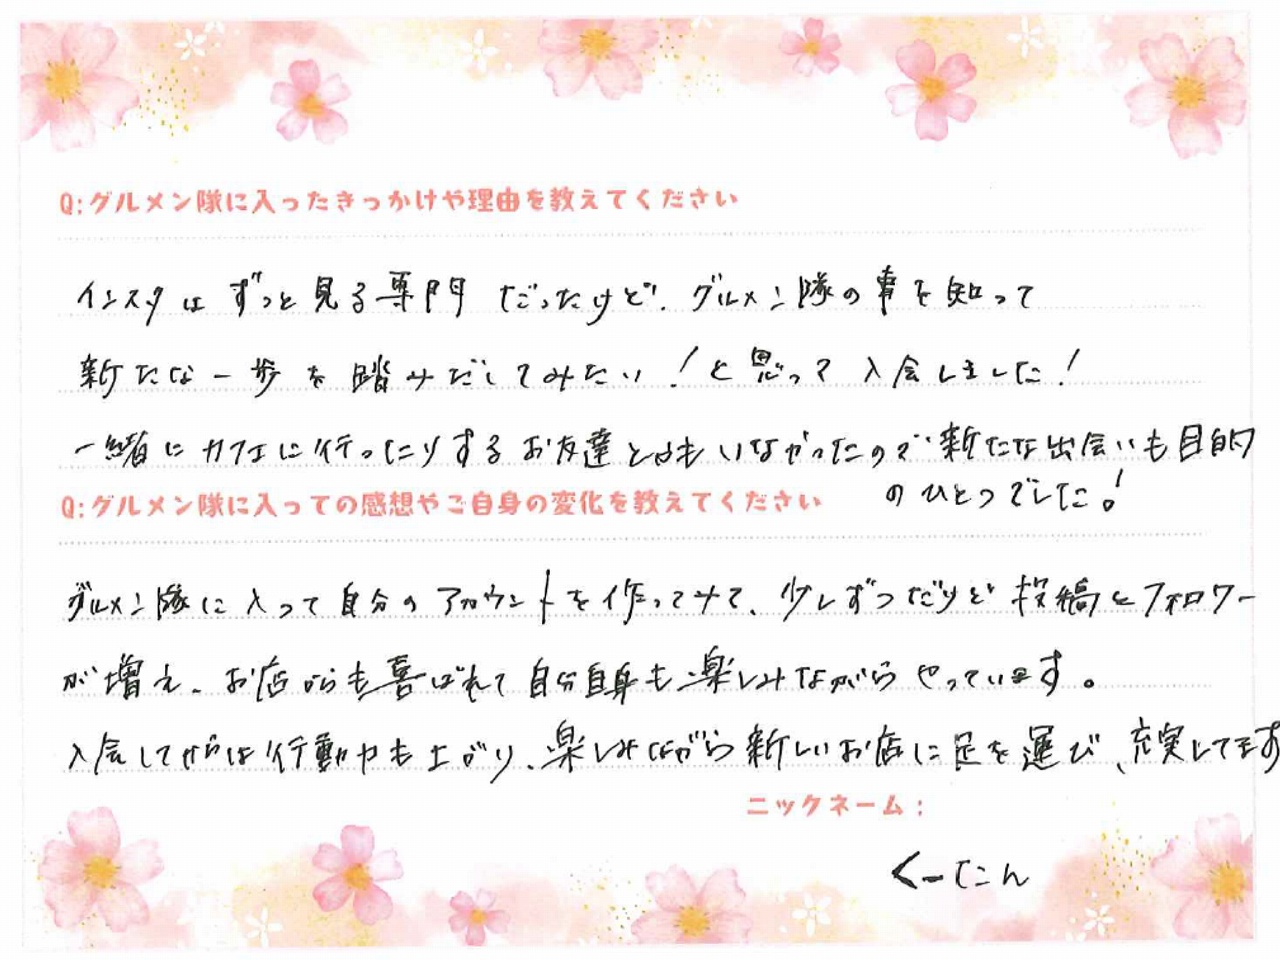 Q:グルメン隊に入ったきっかけや理由を教えてください
インスタはずっと見る専門だったけど、グルメン隊の事を知って
新たな一歩を踏みだしてみたい！と思って入会しました！
一緒にカフェに行ったりするお友達とかもいなかったので新たな出会いも目的
のひとつでした！
Q:グルメン隊に入っての感想やご自身の変化を教えてください
グルメン隊に入って自分のアカウントを作ってみて、少しずつだけど投稿とフォロワー
が増え、お店からも喜ばれて自分自身も楽しみながらやっています。
入会してからは行動力も上がり、楽しみながら新しいお店に足を運び、充実してます
ニックネーム：
くーたん